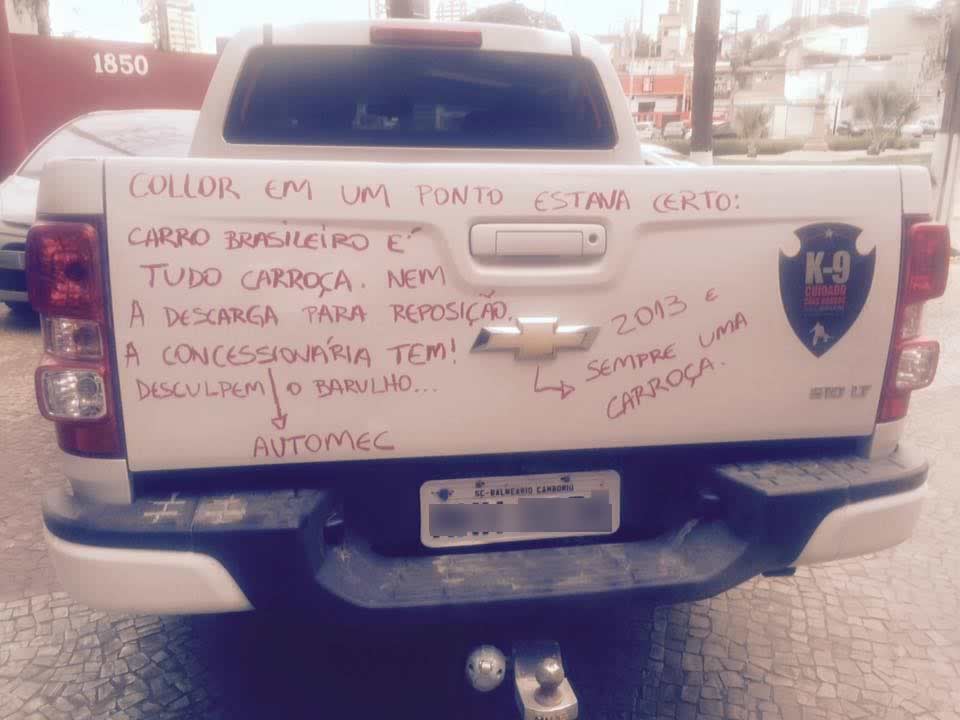 1850
COLLOR EM UM PONTO ESTAVA CERTO:
CARRO BRASILEIRO É
TUDO CARROÇA. NEM
A DESCARGA PARA REPOSIÇÃO.
A CONCESSIONÁRIA TEM!
DESCULPEM O BARULHO...
AUTOMEC
2013 E
SEMPRE UMA
CARROÇA.
K-9
CUIDADO
S10 LT
SC-BALNEARIO CAMBORIU